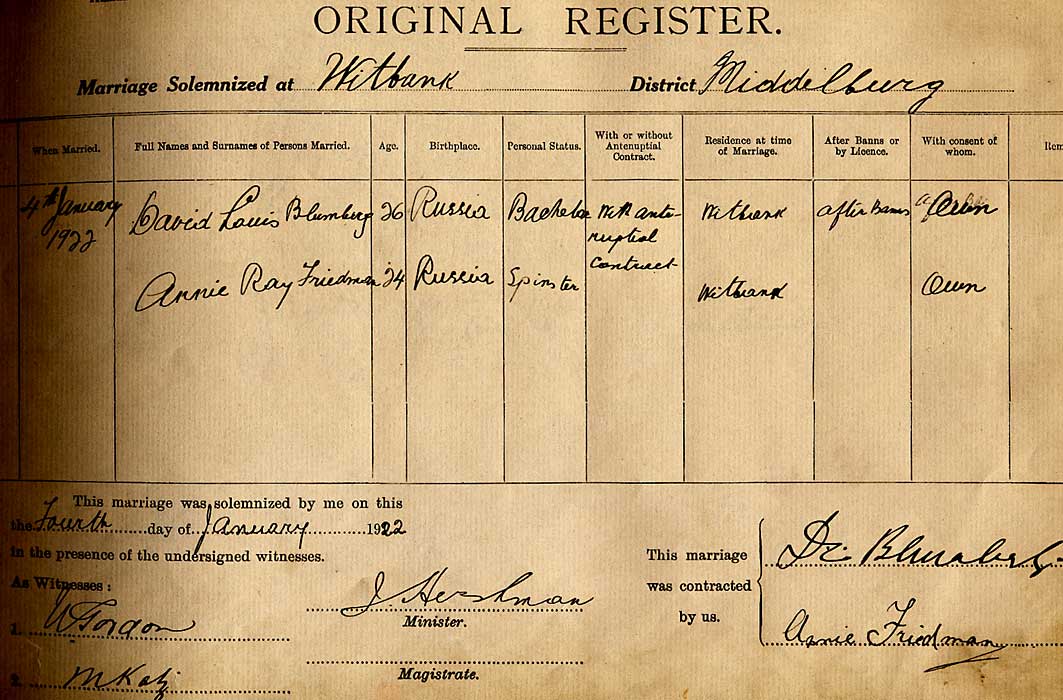 ORIGINAL REGISTER.
Marriage Solemnized at Witbank District Middelburg
When Married. Full Names and Surnames of Persons Married. Age. Birthplace. Personal Status. With or without Antenuptial Contract. Residence at time of Marriage. After Banns or by Licence. With consent of whom. Rem
4th January 1922 David Louis Blumberg 26 Russia Bachelor With ante-nuptial Contract Witbank after Banns Own
Annie Ray Friedman 24 Russia Spinster Witbank Own
This marriage was solemnized by me on this
the Fourth day of January 1922
in the presence of the undersigned witnesses.
As Witnesses:
1. Gordon
2. M Katz
J. Hershman
Minister.
Magistrate.
This marriage
was contracted
by us.
Blumberg
Annie Friedman